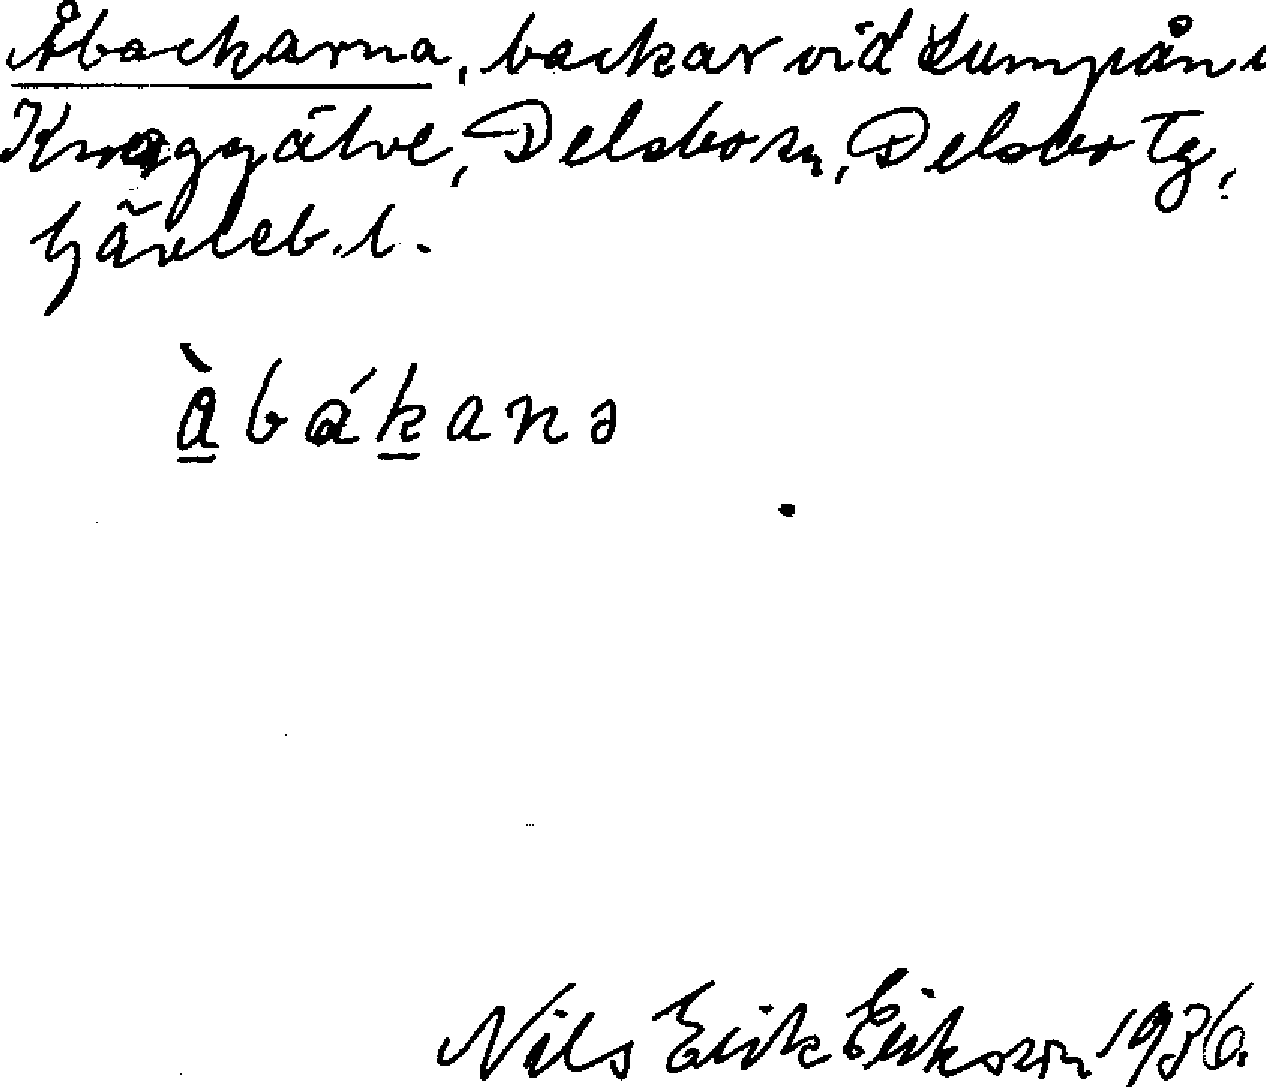 Åbackarna, backar vid Lumpån i
Knaggälve, Delsbo sn, Delsbo tg,
Gävleb. l.
Àbákanə
Nils Erik Erikson 1936.